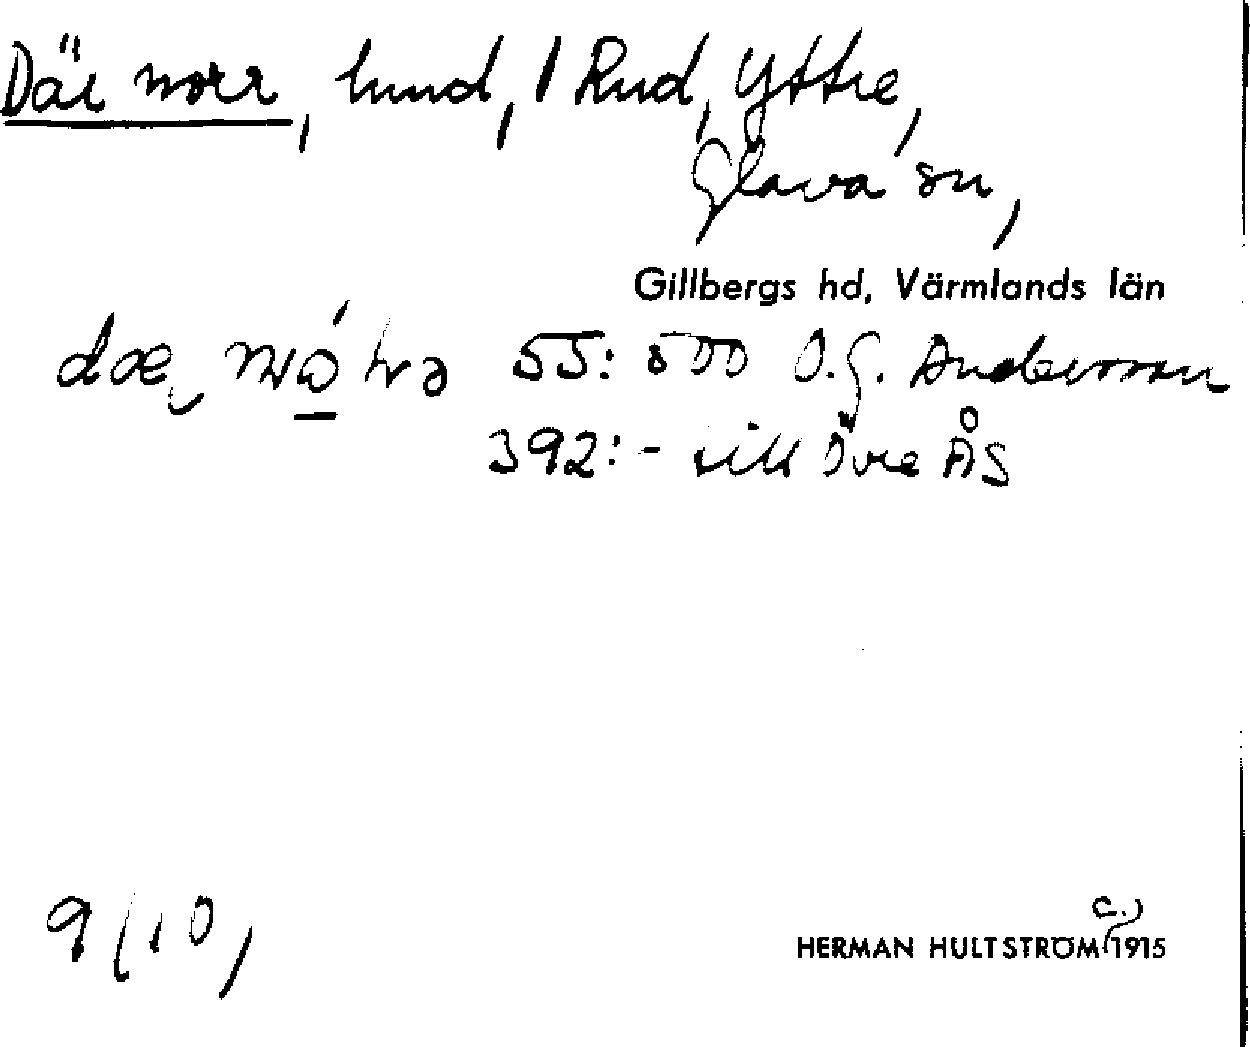 Där norr, lund, 1 Rud, Yttre,
Glava sn,
Gillbergs hd, Värmlands län
55: 500 O.G. Andersson
392:- till Övre Ås
9/10,
c.)
HERMAN HULTSTRÖM 1915